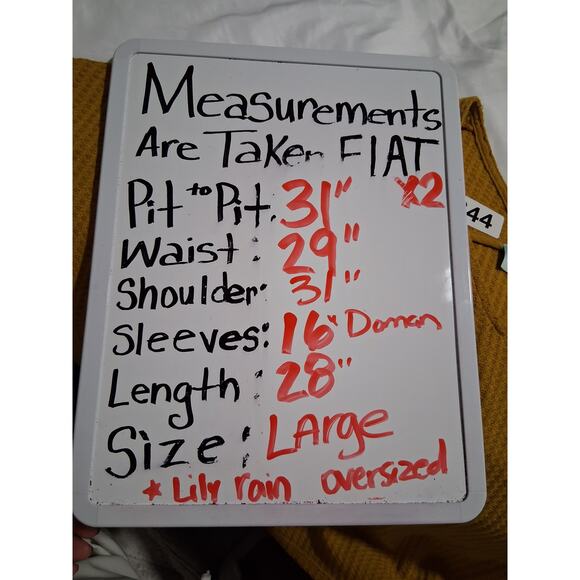 Measurements
Are Taken FlAT
Pit to Pit. 31" X2
Waist: 29"
Shoulder: 31"
Sleeves: 16" Doman
Length: 28"
Size: LArge
* Lily rain oversized
44